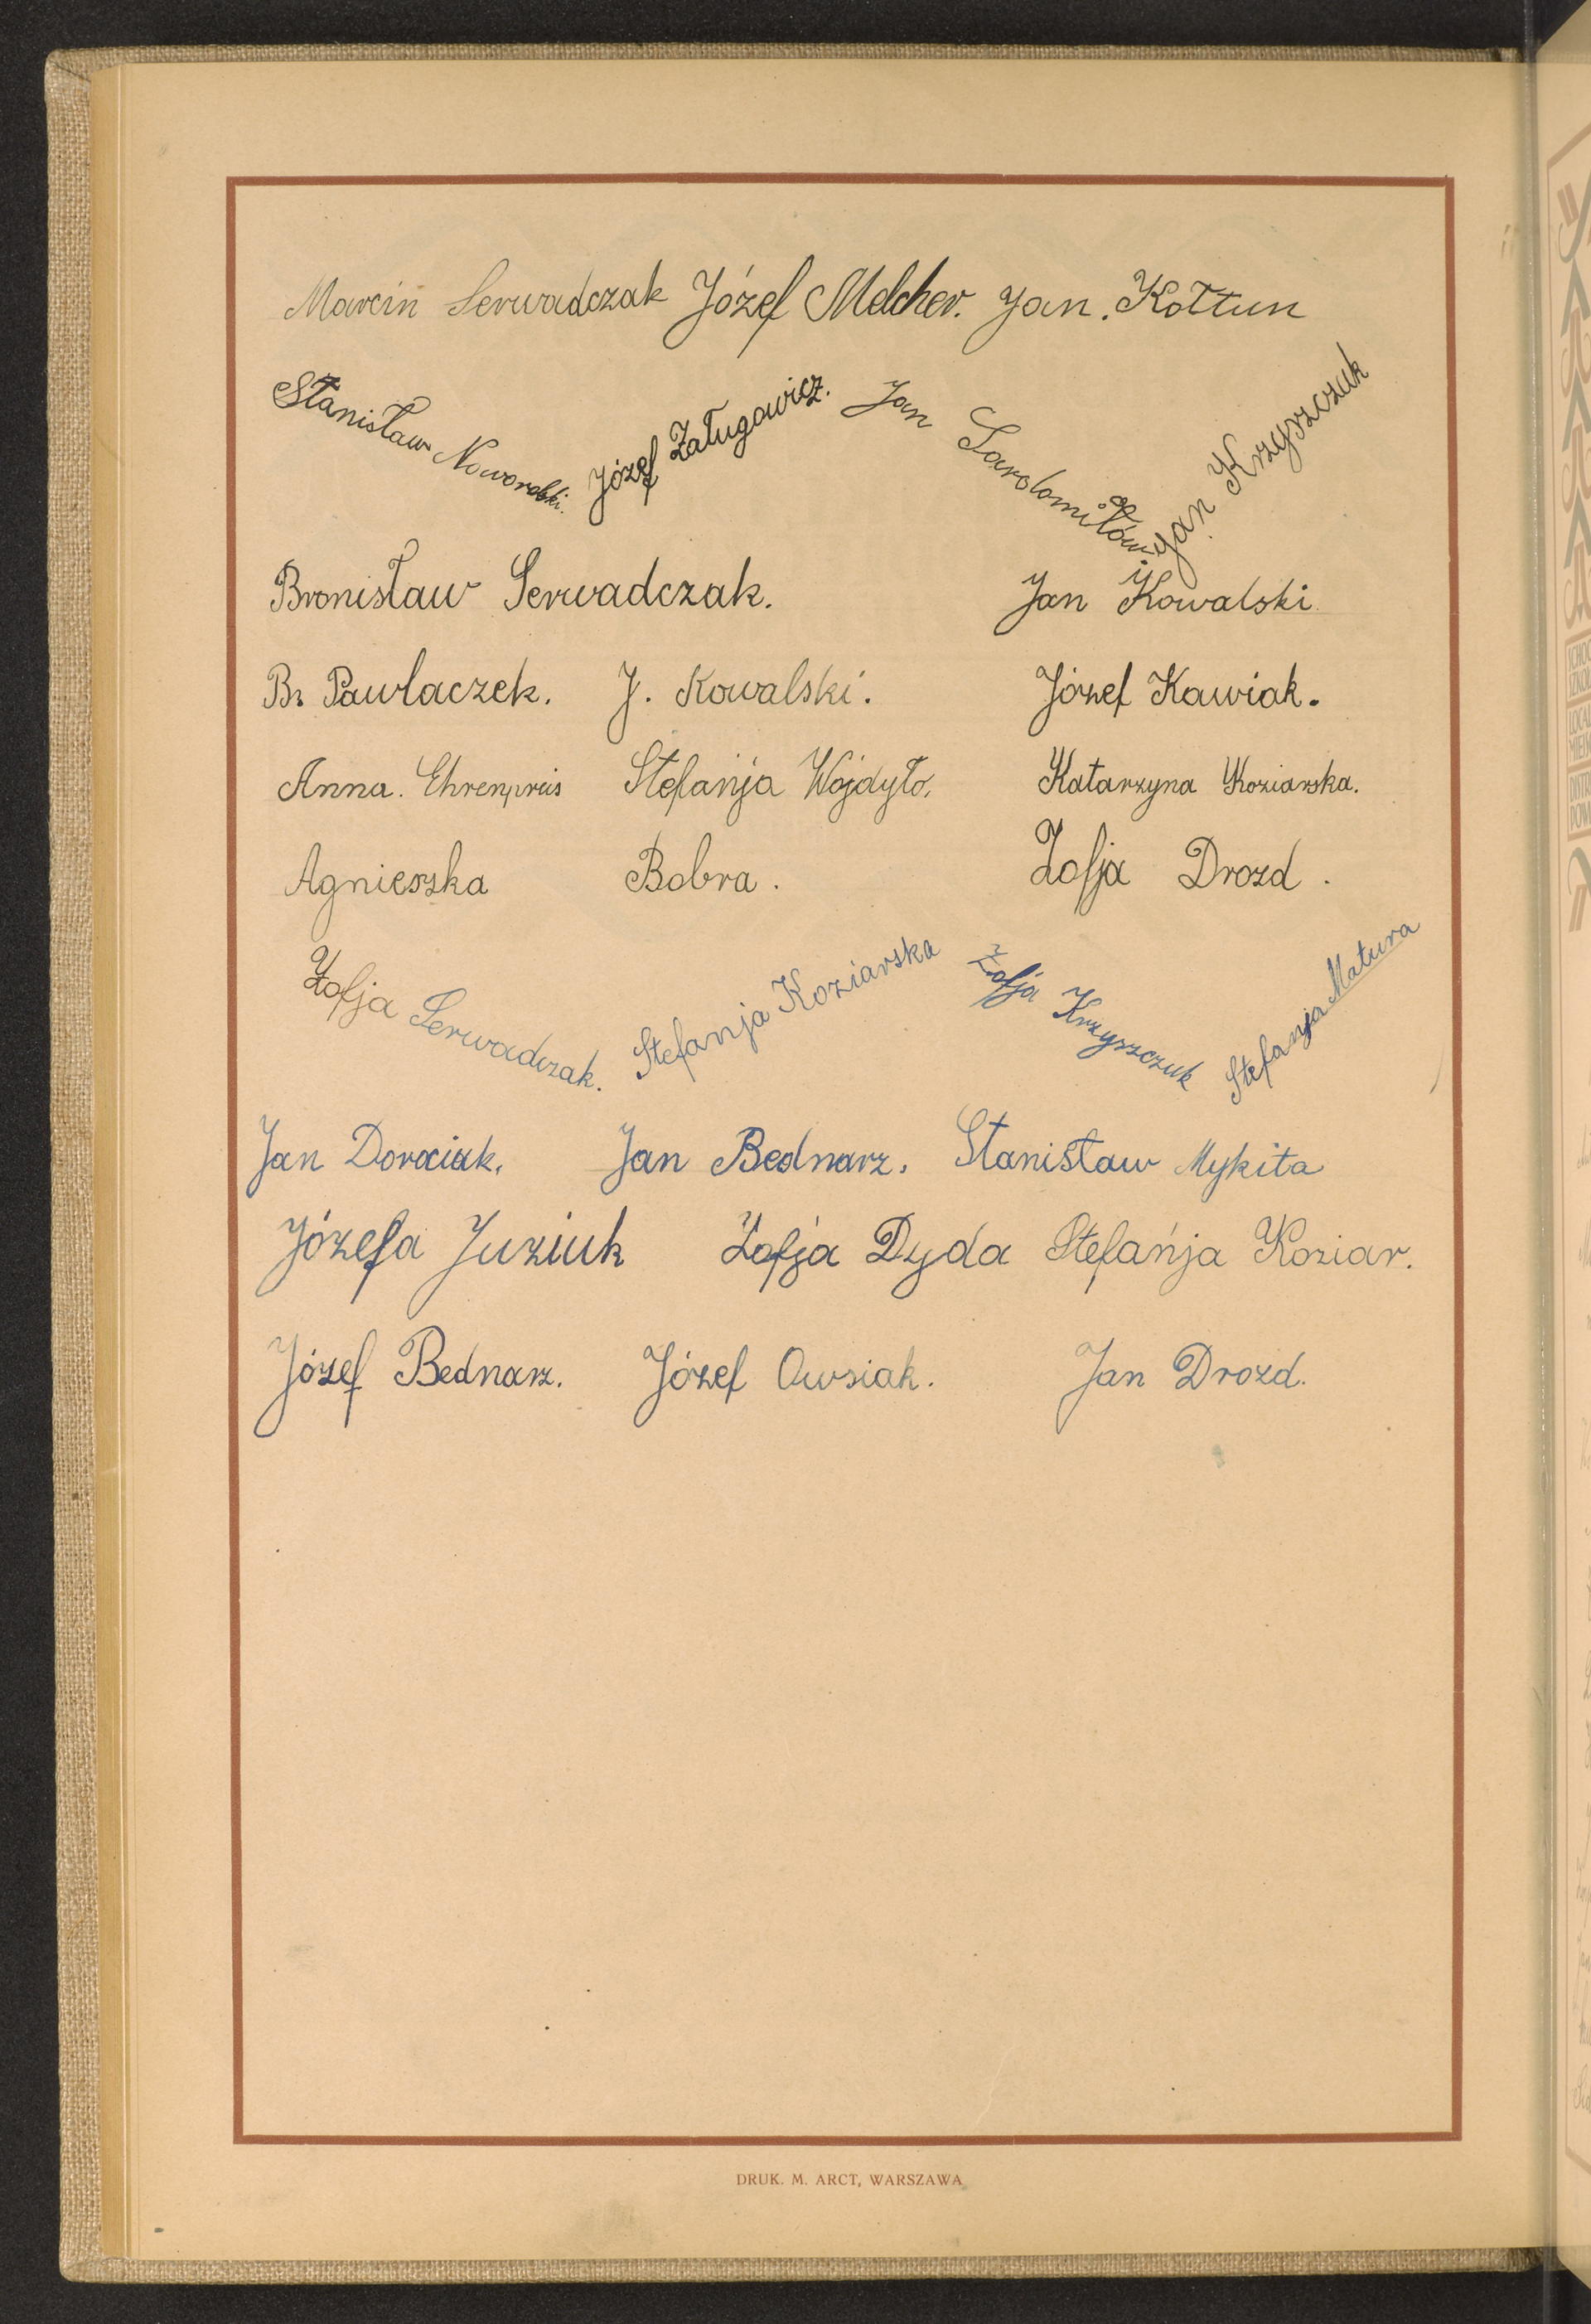 Marcin Serwadczak Józef Melcher. Jan. Kołtun
Stanisław Noworolski. Józef Załugowicz. Jan Jan Krzyszczuk
Bronisław Serwadczak. Jan Kowalski
Br Pawlaczek. J. Kowalski. Józef Kawiak.
Anna. Ehrenpreis Stefanja Wojdyło. Katarzyna Koziarska.
Agnieszka Bobra. Zofja Drozd.
Zofja Serwadczak. Stefanja Koziarska Zofja Krzyszczuk Stefanja Matura
Jan Dorociak. Jan Bednarz. Stanisław Mykita
Józefa Juziuk Zofja Dyda Stefanja Koziar.
Józef Bednarz. Józef Owsiak. Jan Drozd.
DRUK. M. ARCT, WARSZAWA